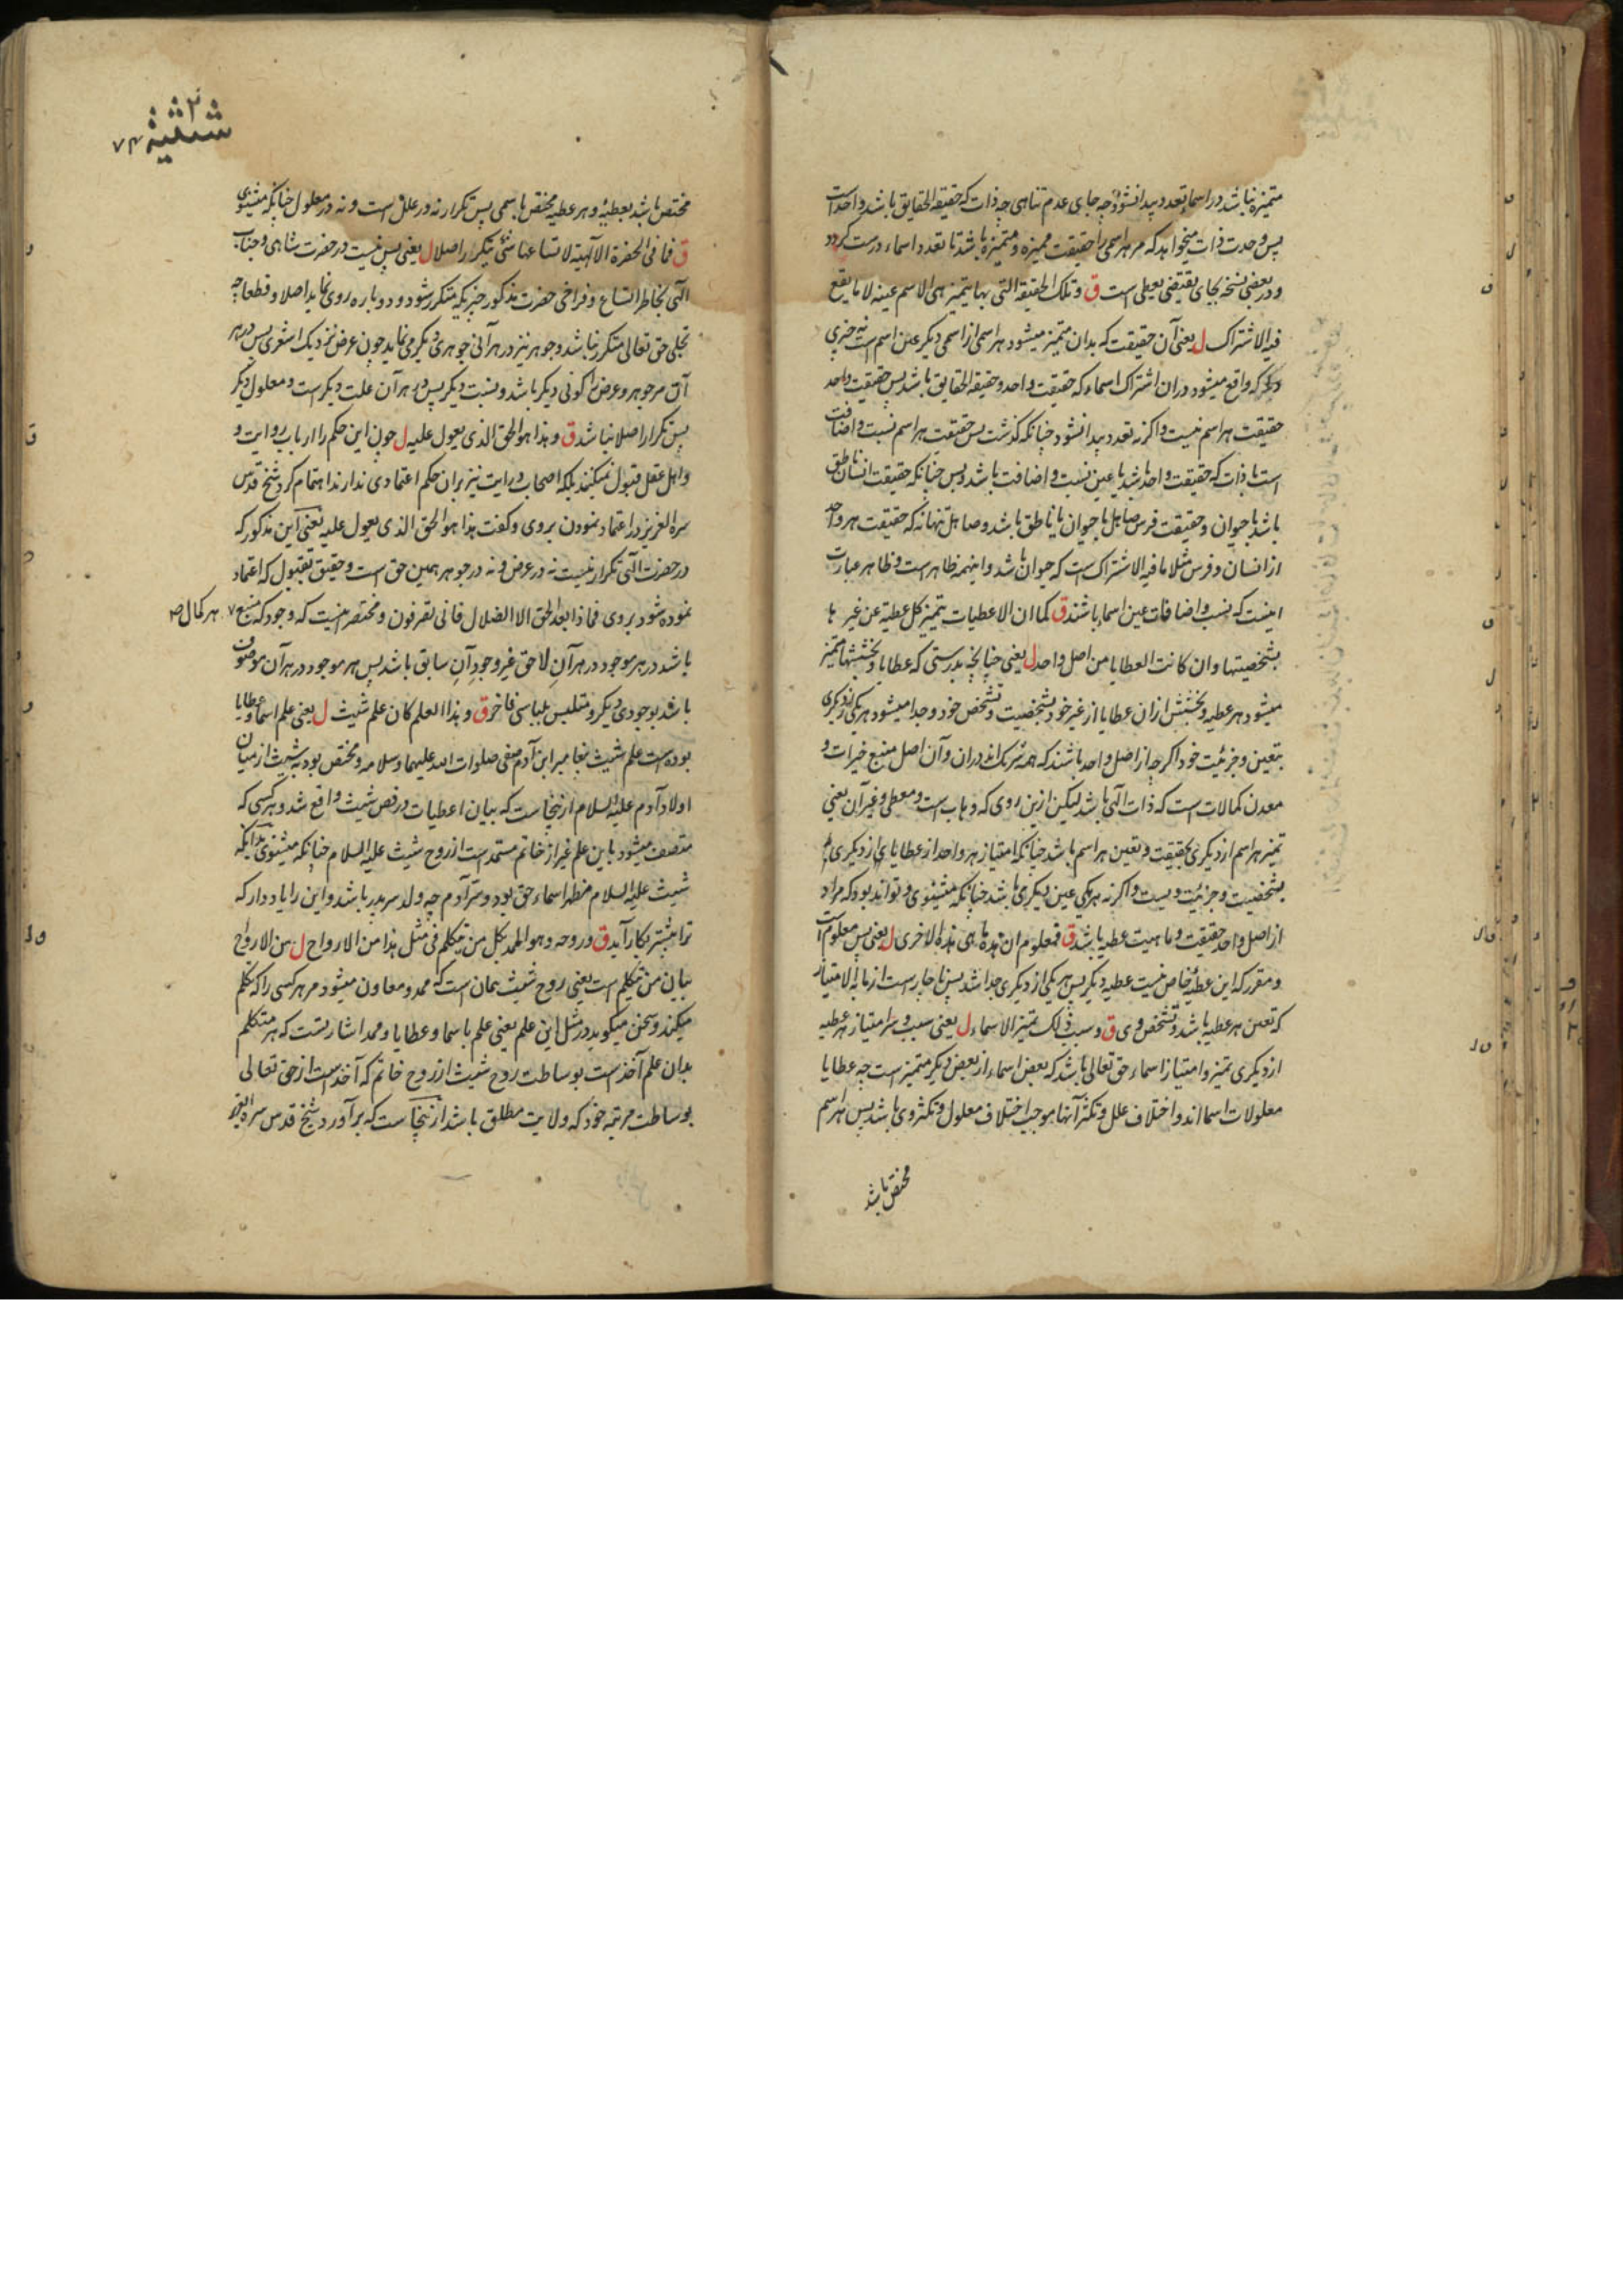 متمیزه نباشد در اسما تعدد پیدا نشود چه جای عدم تناهی چه ذات که حقیقه الحقایق باشد واحد است
پس وحدت ذات میخواهد که مر هر اسمی را حقیقت ممیزه و متمیزه باشد تا تعدد اسماء درست گردد
و در بعضی نسخه بجای یقتضی یعطی است ق و تلک الحقیقة التی بها یتمیز هی الاسم عینه لا ما یقع
فیه الاشتراک ل یعنی آن حقیقت که بدان متمیز میشود هر اسمی از اسمی دیگر عین اسم است نه چیزی
دیگر که واقع میشود در آن اشتراک اسماء که حقیقت واحد و حقیقة الحقایق باشد پس حقیقت واحد
حقیقت هر اسم نیست واگرنه تعدد پیدا نشود چنانکه گذشت پس حقیقت هر اسم نسبت و اضافت
است با ذات که حقیقت واحد باشد یا عین نسبت و اضافت باشد و بس چنانکه حقیقت انسان ناطق
باشد با حیوان و حقیقت فرس صاهل با حیوان یا ناطق باشد و صاهل تنها نه که حقیقت هر واحد
از انسان و فرس مثلا ما فیه الاشتراک است که حیوان باشد و اینهمه ظاهر است و ظاهر عبارت
اینست که نسب و اضافات عین اسما باشند ق کما ان الاعطیات یتمیز کل عطیة عن غیرها
بشخصیتها وان کانت العطایا من اصل واحد ل یعنی چنانچه بدرستی که عطایا و بخششها متمیز
میشود هر عطیه و بخشش از آن عطایا از غیر خود بشخصیت و تشخص خود و جدا میشود هر یکی از دیگری
بتعین و جزئیت خود اگرچه از اصل واحد باشند که همه شریک اند در آن و آن اصل منبع خیرات و
معدن کمالات است که ذات الهی باشد لیکن ازین روی که وهاب است و معطی و غیر آن یعنی
تمیز هر اسم از دیگری بحقیقت و تعین هر اسم باشد چنانکه امتیاز هر واحد از عطایای از دیگری
بشخصیت و جزئیت ویست واگرنه هر یکی عین دیگری باشد چنانکه میشنوی و تواند بود که مراد
از اصل واحد حقیقت و ماهیت عطیه باشد ق فمعلوم ان هذه ما هی هذه الاخری ل یعنی پس معلوم است
و مقرر که این عطیه خاص نیست عطیه دیگر پس هر یکی از دیگری جدا شد پس ناچار است از ما به الامتیاز
که تعین هر عطیه باشد و تشخص وی ق و سبب ذلک تمیز الاسماء ل یعنی سبب و سر امتیاز هر عطیه
از دیگری تمیز و امتیاز اسماء حق تعالی باشد که بعض اسماء از بعض دیگر متمیز است چه عطایا
معلولات اسما اند و اختلاف علل و تکثر آنها موجب اختلاف معلول و تکثر وی باشد پس هر اسم
مختص باشد
شیثیة
۷۴
مختص باشد بعطیه و هر عطیه مختص باسمی پس تکرار نه در علل است و نه در معلول چنانکه میشنوی
ق فما فی الحضرة الالهیة لاتساعها شئ یتکرر اصلا ل یعنی پس نیست در حضرت شاهی و جناب
الهی بخاطر اتساع و فراخی حضرت مذکور چیزیکه متکرر شود و دوباره روی نماید اصلا و قطعا چه
تجلی حق تعالی متکرر نباشد و جوهر نیز در هر آنی جوهری دیگر می نماید چون عرض نزدیک اشعری پس در هر
آن مر جوهر و عرض را کونی دیگر باشد و نسبت دیگر پس در هر آن علت دیگر است و معلول دیگر
پس تکرار اصلا نباشد ق و هذا هو الحق الذی یعول علیه ل چون این حکم را ارباب روایت و
و اهل عقل قبول نمیکنند بلکه اصحاب درایت نیز بر آن حکم اعتمادی ندارند اهتمام کرد شیخ قدس
سره العزیز در اعتماد نمودن بر وی و گفت هذا هو الحق الذی یعول علیه یعنی این مذکور که
در حضرت الهی تکرار نیست نه در عرض و نه در جوهر همین حق است و حقیق بقبول که اعتماد
نموده شود بر وی فماذا بعد الحق الا الضلال فانی تصرفون و مختصر اینست که وجود که منبع هر کمال
باشد در هر موجود در هر آن لاحق غیر وجود آن سابق باشد پس هر موجود در هر آن موصوف
باشد بوجودی دیگر و متلبس بلباسی فاخر ق و هذا العلم کان علم شیث ل یعنی علم اسما و عطایا
بوده است علم شیث پیغامبر ابن آدم صفی صلوات الله علیهما و سلامه و مختص بود به شیث از میان
اولاد آدم علیه السلام ازینجا است که بیان اعطیات در فص شیث واقع شد و هر کسی که
متصف میشود باین علم غیر از خاتم مستمد است از روح شیث علیه السلام چنانکه میشنوی بدانکه
شیث علیه السلام مظهر اسماء حق بود و سر آدم چه ولد سر پدر باشد و این را یاد دار که
ترا بیشتر بکار آید ق و روحه و هو الممد لکل من یتکلم فی مثل هذا من الارواح ل من الارواح
بیان من یتکلم است یعنی روح شیث همان است که ممد و معاون میشود مر هر کسی را که تکلم
میکند و سخن میگوید در مثل این علم یعنی علم باسما و عطایا و ممد اشارتست که هر متکلم
بدان علم آخذ است بوساطت روح شیث از روح خاتم که آخذ است از حق تعالی
بوساطت مرتبه خود که ولایت مطلق باشد ازینجا است که بر آورد شیخ قدس سره العزیز